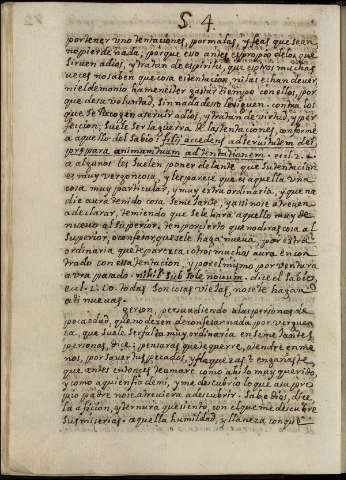 S. 4
por tener uno tentaciones, por malas, y feas que sean
no pierde nada, porque eso antes es propio de los que
siruen a dios, y tratan de espiritu, que es otros muchas
veces no saben que cosa es tentacion, ni las echan de uer,
ni el demonio ha menester gastar tiempo con ellos, por
que de su voluntad, sin nada desto los siguen. contra los
que se Recogen a seruir a dios, y tratan de virtud, y per
feccion, suele ser la guerra de las tentaciones, conforme
a aquello del Sabio: fili accedens ad seruitutem dei
præpara animam tuam ad tentationem. eccl. 2.
a algunos les suelen poner delante que su tentacion
es muy vergonçosa, y les parece que es aquella una
cosa muy particular, y muy extraordinaria, y que na
die aura tenido cosa semejante, y assi no se atreuen
a declarar, temiendo que se le hara aquello muy de
nueuo al superior, ten por cierto que no diras cosa al
Superior, o confesor que se le haga nueua, por extra
ordinaria que te parezca, otros muchos aura encon
trado con essa tentacion, y por el mismo por ventura
aura pasado. nihil sub sole nouum. dice el sabio,
eccl. 1. 10 todas son cosas viejas, no se te hagan
a ti nueuas.
gerson, persuadiendo a las personas de
poca edad, que no dexen de confesar nada por verguen
ça, que suele ser falta muy ordinaria en semejantes
personas, dice: pensaras que te querre, a tendre en me
nos, por sauer tus pecados, y flaquezas? engañaste
que antes entonces te amare como a hijo muy querido,
y como a quien fio de mi, y me descubrio lo que a su pro
pio padre no se atreuiera a descubrir. Sabe dios, dice
la aficion, y ternura que siento, con el que me descubre
sus miserias. aquella humildad, y llaneza con que